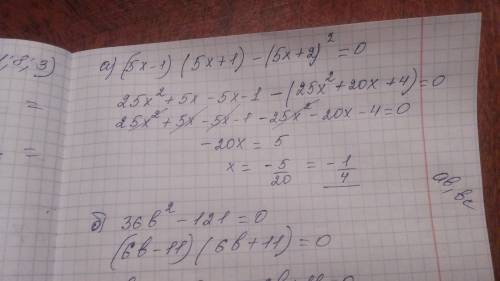 1; 8; 3)
=
=
а) (5x-1) (5x+1) - (5x+2)² = 0
25x² + 5x - 5x - 1 - (25x² + 20x + 4) = 0
25x² + 5x - 5x - 1 - 25x² - 20x - 4 = 0
-20x = 5
x = -5/20 = -1/4
б) 36b² - 121 = 0
(6b-11) (6b+11) = 0